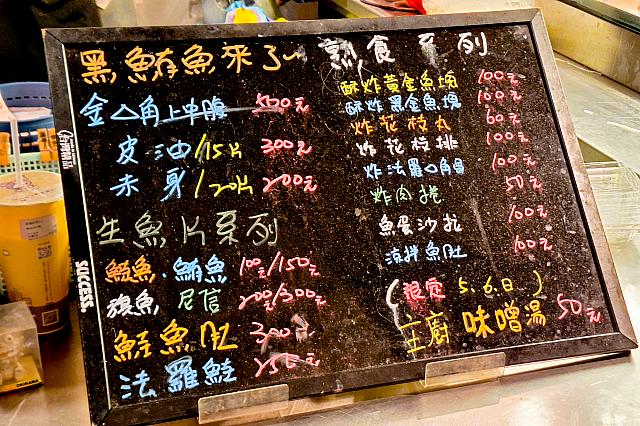 黑鮪魚來了~
金△角上中腹 500元
皮油/15片 300元
赤身/20片 200元
生魚片系列
鮭魚.鮪魚 100元/150元
旗魚 尼信 200元/300元
鮭魚肚 300元
法羅鮭 元
熟食系列
酥炸黃金魚塊 100元
酥炸黑金魚塊 100元
炸花枝丸 60元
炸花枝排 100元
炸法羅△角骨 100元
炸肉捲 50元
魚蛋沙拉 100元
涼拌魚肚 100元
(限定 5.6.日)
主廚味噌湯 50元
SUCCESS.